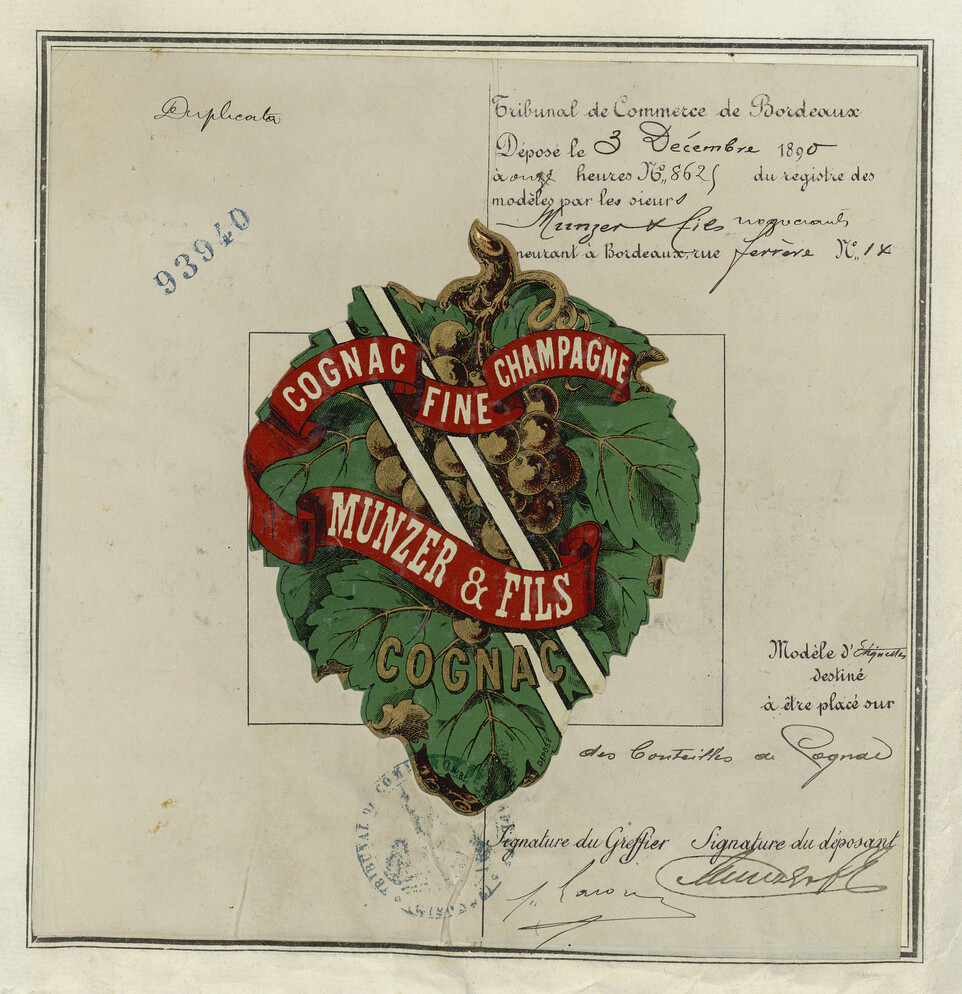 Duplicata
Tribunal de Commerce de Bordeaux
Déposé le 3 Décembre 1890
à onze heures Nº 8625 du registre des
modèles par les sieurs
Munzer & fils négociants
meurant à Bordeaux, rue Ferrère Nº 14
93940
COGNAC FINE CHAMPAGNE
MUNZER & FILS
COGNAC
DÉPOSÉ
Modèle d'étiquettes
destiné
à être placé sur
des bouteilles de Cognac
Signature du Greffier Signature du déposant
TRIBUNAL DE COMMERCE